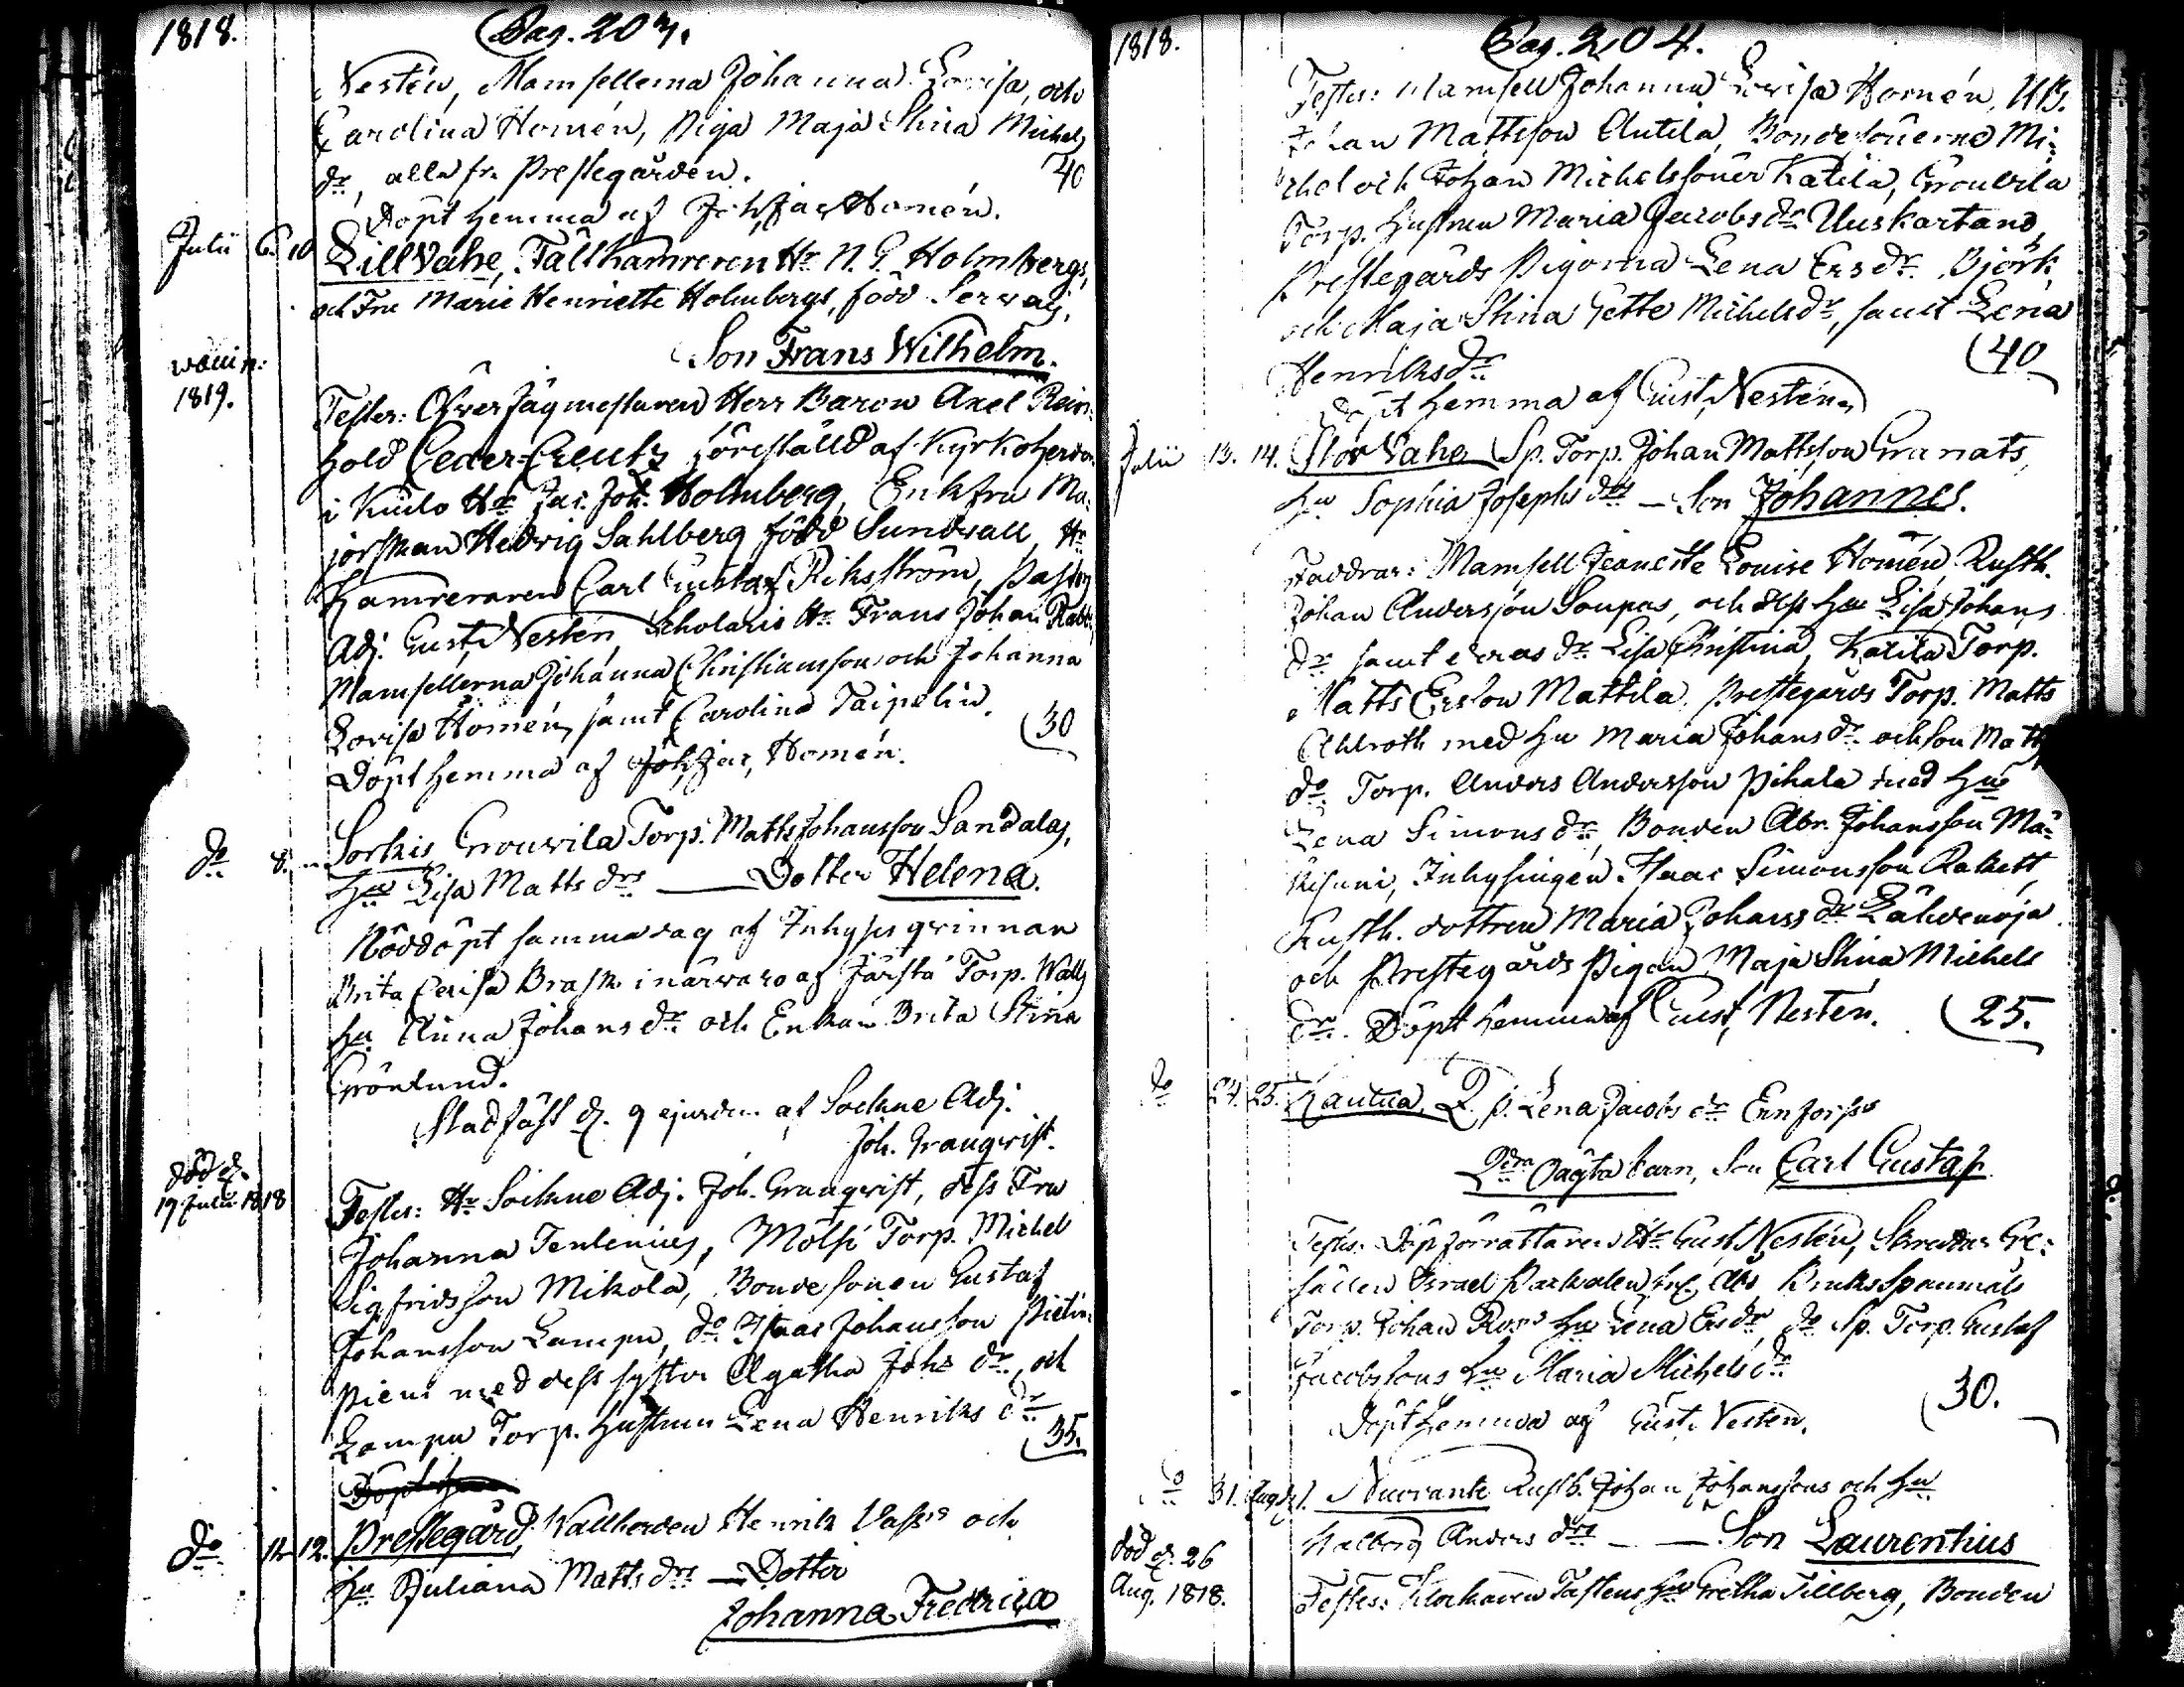 1818.
Pag. 203.
Nestén, Mamsellerna Johanna Lovisa, och
Carolina Homén, Piga Maja Stina Michels
dr, alla fr. Prestegården.
40
Döpt hemma af Joh. Jac. Homén.
Julii 6. 10.
Lill Vahe, Fältkamreren Hr N. G. Holmbergs,
och Fru Marie Henriette Holmbergs, född
Son Frans Wilhelm.
vaccin:
1819.
Testes: Öfwerjägmestaren Herr Baron Axel Rein-
hold Ceder-Creutz föreställd af Kyrkoherden
i Kiulo Hr Jac. Joh. Holmberg, Enkfru Ma-
jorskan Hedvig Sahlberg född Sundvall, Hr
Kamreraren Carl Gustaf Riksström, Past.
Adj. Gust. Nestén, Scholaris Hr Frans Johan
Mamsellerna Johanna Christiansson och Johanna
Lovisa Homén, samt Carolina Taipelin.
30
Döpt hemma af Joh. Jac. Homén.
do 8.
Sorkis Crouvila Torp. Matts Johansson Sandalas,
hu Lisa Matts drs — Dotter Helena.
Nöddöpt samma dag af Inhyses qvinnan
Brita Brask i närvaro af Järstä Torp.
hu Anna Johans dr och Enkan Brita Stina
Grönlund.
Stadfäst d. 9 ejusdem af Sockne Adj.
Joh. Granqvist.
död d.
19 Julii 1818
Testes: Hr Sockne Adj. Joh. Granqvist, dess Fru
Johanna Tenlenius, Mölsi Torp. Michel
Sigfridsson Mikola, Bondesonen Gustaf
Johansson Lampu, do Isaac Johansson
med dess syster Agatha Johs dr, och
Lampu Torp. hustrun Lena Henriks dr
35.
do 12. 12.
Prestegård, Vallherden Henrik och
hu Juliana Matts drs — Dotter
Johanna Fredrica
1818.
Pag. 204.
Testes: Mamsell Johanna Lovisa Homén,
Johan Mattsson Antila, Bondesönerne Mi-
chel och Johan Michelssöner Katila, Crouvila
Torp. hustrun Maria Jacobs dr Uuskartano,
Prestegårds Pigorna Lena Ers dr Björk
och Maja Stina Michels dr, samt Lena
Henriks dr
40
Döpt hemma af Gust. Nestén
Julii 13. 14.
Stor Vahe, Sp. Torp. Johan Mattsson Granats,
hu Sophia Josephs drs — Son Johannes.
Faddrar: Mamsell Jeanette Louise Homén, Rusth.
Johan Andersson Soupas, och dess hu Lisa Johans
dr samt deras dr Lisa Christina, Katila Torp.
Matts Ersson Mattila, Prestegårds Torp. Matts
Ahlroth med hu Maria Johans dr och son Matts
do Torp. Anders Andersson Pihala med hu
Lena Simons dr, Bonden Abr. Johansson
Inhysingen Isaac Simonsson Rakett,
Rusth. dottren Maria Johans dr Lähdenoja
och Prestegårds Pigan Maja Stina Michels
dr. Döpt hemma af Gust. Nestén.
25.
do 24. 25.
Kautua, Q. p. Lena Jacobs dr Ernfors
oägta barn, Son Carl Gustaf
Testes: Döpförrättaren Hr Gust. Nestén, Skreddar Ge-
sällen Israel Bruks Spanmåls
Torp. Johan Ross hu Lena Ers dr, do Sp. Torp. Gustaf
Jacobssons hu Maria Michels dr
30.
Döpt hemma af Gust. Nestén.
do 31. Aug. 1.
Naurante Rusth. Johan Johanssons och hu
Walborg Anders drs — Son Laurentius
död d. 26
Aug. 1818.
Testes: Klockaren Tastens hu Gretha Tillberg, Bonden